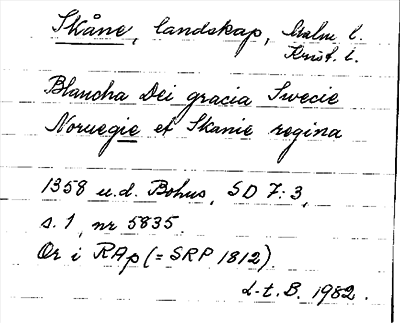 Skåne, landskap, Malm l.
Krist. l.
Blancha Dei gracia Swecie
Noruegie et Skanie regina
1358 u.d. Bohus, SD 7:3,
s. 1, nr 5835.
Or i RAp (= SRP 1812).
L-t. B. 1982.